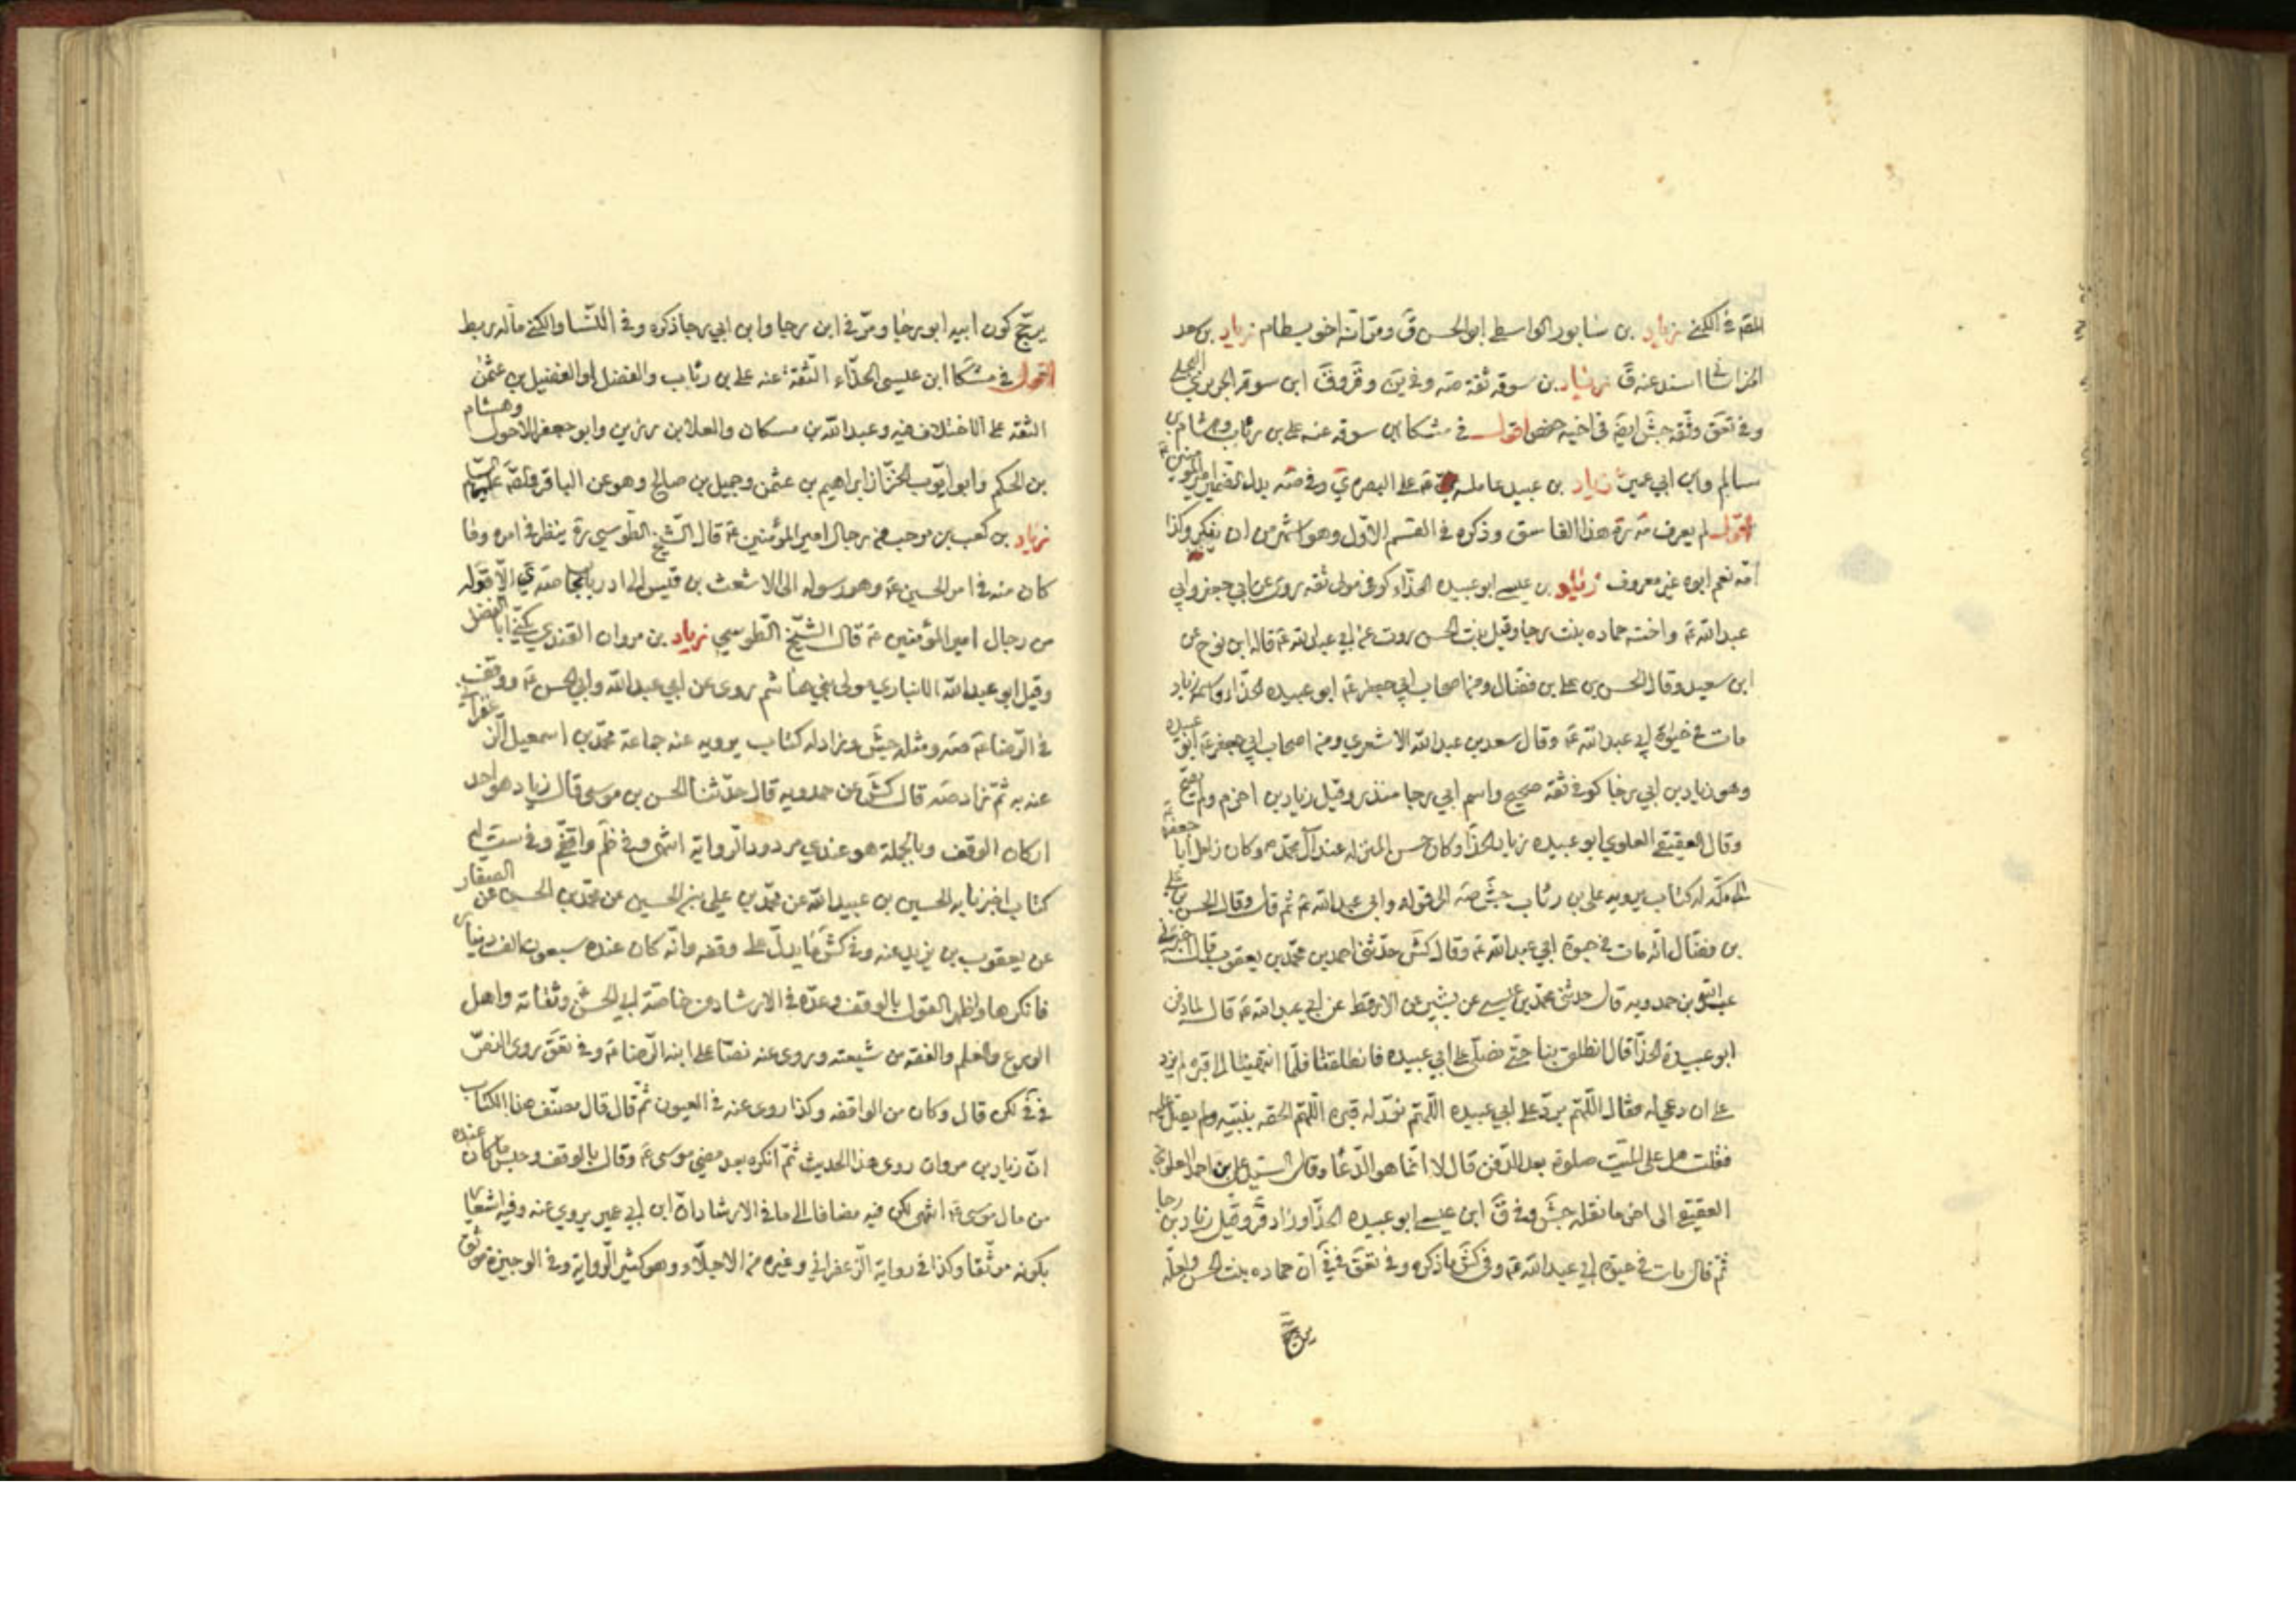 في الكنى زياد بن سابور الواسطي ابو الحسن ق ومر انه اخو بسطام زياد بن سعد
الخراساني اسند عنه ق زياد بن سوقه ثقة صه وفي ين وقر وق ابن سوقه الجريري البجلي
وفي تعق وثقه جش ايضا في اخيه حفص اقول في مشكا ابن سوقه عنه علي بن رئاب وهشام بن
سالم وابن ابي عمير زياد بن عبيد عامله ع على البصره ي وفي صه بدل الضمير امير المؤمنين ع
اقول لم يعرف مة ره هذا الفاسق وذكره في القسم الاول وهو اشهر من ان ينكر وكذا
امه نعم ابوه غير معروف زياد بن عيسى ابو عبيده الحذاء كوفي مولى ثقه روى عن ابي جعفر وابي
عبد الله ع واخته حماده بنت رجا وقيل بنت الحسن روت عن ابي عبد الله ع قاله ابن نوح عن
ابن سعيد وقال الحسن بن علي بن فضال ومن اصحاب ابي جعفر ع ابو عبيده الحذاء واسمه زياد
مات في حيوة ابي عبد الله ع وقال سعد بن عبد الله الاشعري ومن اصحاب ابي جعفر ع ابو عبيده
وهو زياد بن ابي رجا كوفي ثقه صحيح واسم ابي رجا منذر وقيل زياد بن اخرم ولم يصح
وقال العقيقي العلوي ابو عبيده زياد الحذا وكان حسن المنزله عند آل محمد ص وكان زامل ابا جعفر ع
الى مكه له كتاب يرويه علي بن رئاب جش صه الى قوله وابي عبد الله ع ثم قال وقال الحسن بن علي
بن فضال انه مات في حيوة ابي عبد الله ع وقال كش حدثني احمد بن محمد بن يعقوب قال اخبرني
عبد الله بن حمدويه قال حدثني محمد بن عيسى عن بشير عن الارقط عن ابي عبد الله ع قال لما دفن
ابو عبيدة الحذا قال انطلق بنا حتى نصلي على ابي عبيده فانطلقنا فلما انتهينا الى قبره لم يزد
على ان دعى له فقال اللهم برد على ابي عبيده اللهم نور له قبره اللهم الحقه بنبيه ولم يصل عليه
فقلت هل على الميت صلوة بعد الدفن قال لا انما هو الدعا وقال السيد علي بن احمد العلوي
العقيقي الى اخر ما نقله جش وفي ق ابن عيسى ابو عبيده الحذا وزاد قر وقيل زياد بن رجا
ثم قال مات في حيوة ابي عبد الله ع وفي كش ما ذكره وفي تعق في ق ان حماده بنت الحسن ولعله
يرجح
يرجح كون ابيه ابو رجا ومر في ابن رجا وابن ابي رجا ذكره وفي النسا والكنى ماله ربط
اقول في مشكا ابن عيسى الحذاء الثقة عنه علي بن رئاب والفضل او الفضيل بن عثمن
الثقه على الاختلاف فيه وعبد الله بن مسكان والعلا بن رزين وابو جعفر الاحول وهشام
بن الحكم وابو ايوب الخزاز ابراهيم بن عثمن وجميل بن صالح وهو عن الباقر
زياد بن كعب بن مرحب من رجال امير المؤمنين ع قال الشيخ الطوسي ره ينظر في امره وما
كان منه في امر الحسين ع وهو رسوله الى الاشعث بن قيس الى اذربايجان صه ي الا قوله
من رجال امير المؤمنين ع قال الشيخ الطوسي زياد بن مروان القندي يكنى ابا الفضل
وقيل ابو عبد الله الانباري مولى بني هاشم روى عن ابي عبد الله وابي الحسن ع ووقف
في الرضا ع صه ومثله جش وزاد له كتاب يرويه عنه جماعة محمد بن اسمعيل الزعفراني
عنه به ثم زاد صه قال كش عن حمدويه قال حدثنا الحسن بن موسى قال زياد هو احد
اركان الوقف وبالجملة هو عندي مردود الرواية انتهى وفي ظم واقفي وفي ست له
كتاب اخبرنا به الحسين بن عبيد الله عن محمد بن علي بن الحسين عن محمد بن الحسن عن الصفار
عن يعقوب بن يزيد عنه وفي كش ما يدل على وقفه وانه كان عنده سبعون الف دينار
فانكرها واظهر القول بالوقف وعده في الارشاد من خاصة ابي الحسن وثقاته واهل
الورع والعلم والفقه من شيعته وروى عنه نصا على ابنه الرضا ع وفي تعق روى النص
في في لكن قال وكان من الواقفه وكذا روى عنه في العيون ثم قال قال مصنف هذا الكتاب
ان زياد بن مروان روى هذا الحديث ثم انكره بعد مضي موسى ع وقال بالوقف وحبس ما كان عنده
من مال موسى ع انتهى لكن فيه مضافا الى ما في الارشاد ان ابن ابي عمير يروي عنه وفيه اشعار
بكونه موثقا وكذا في رواية الزعفراني وغيره من الاجلاء وهو كثير الرواية وفي الوجيزة موثق